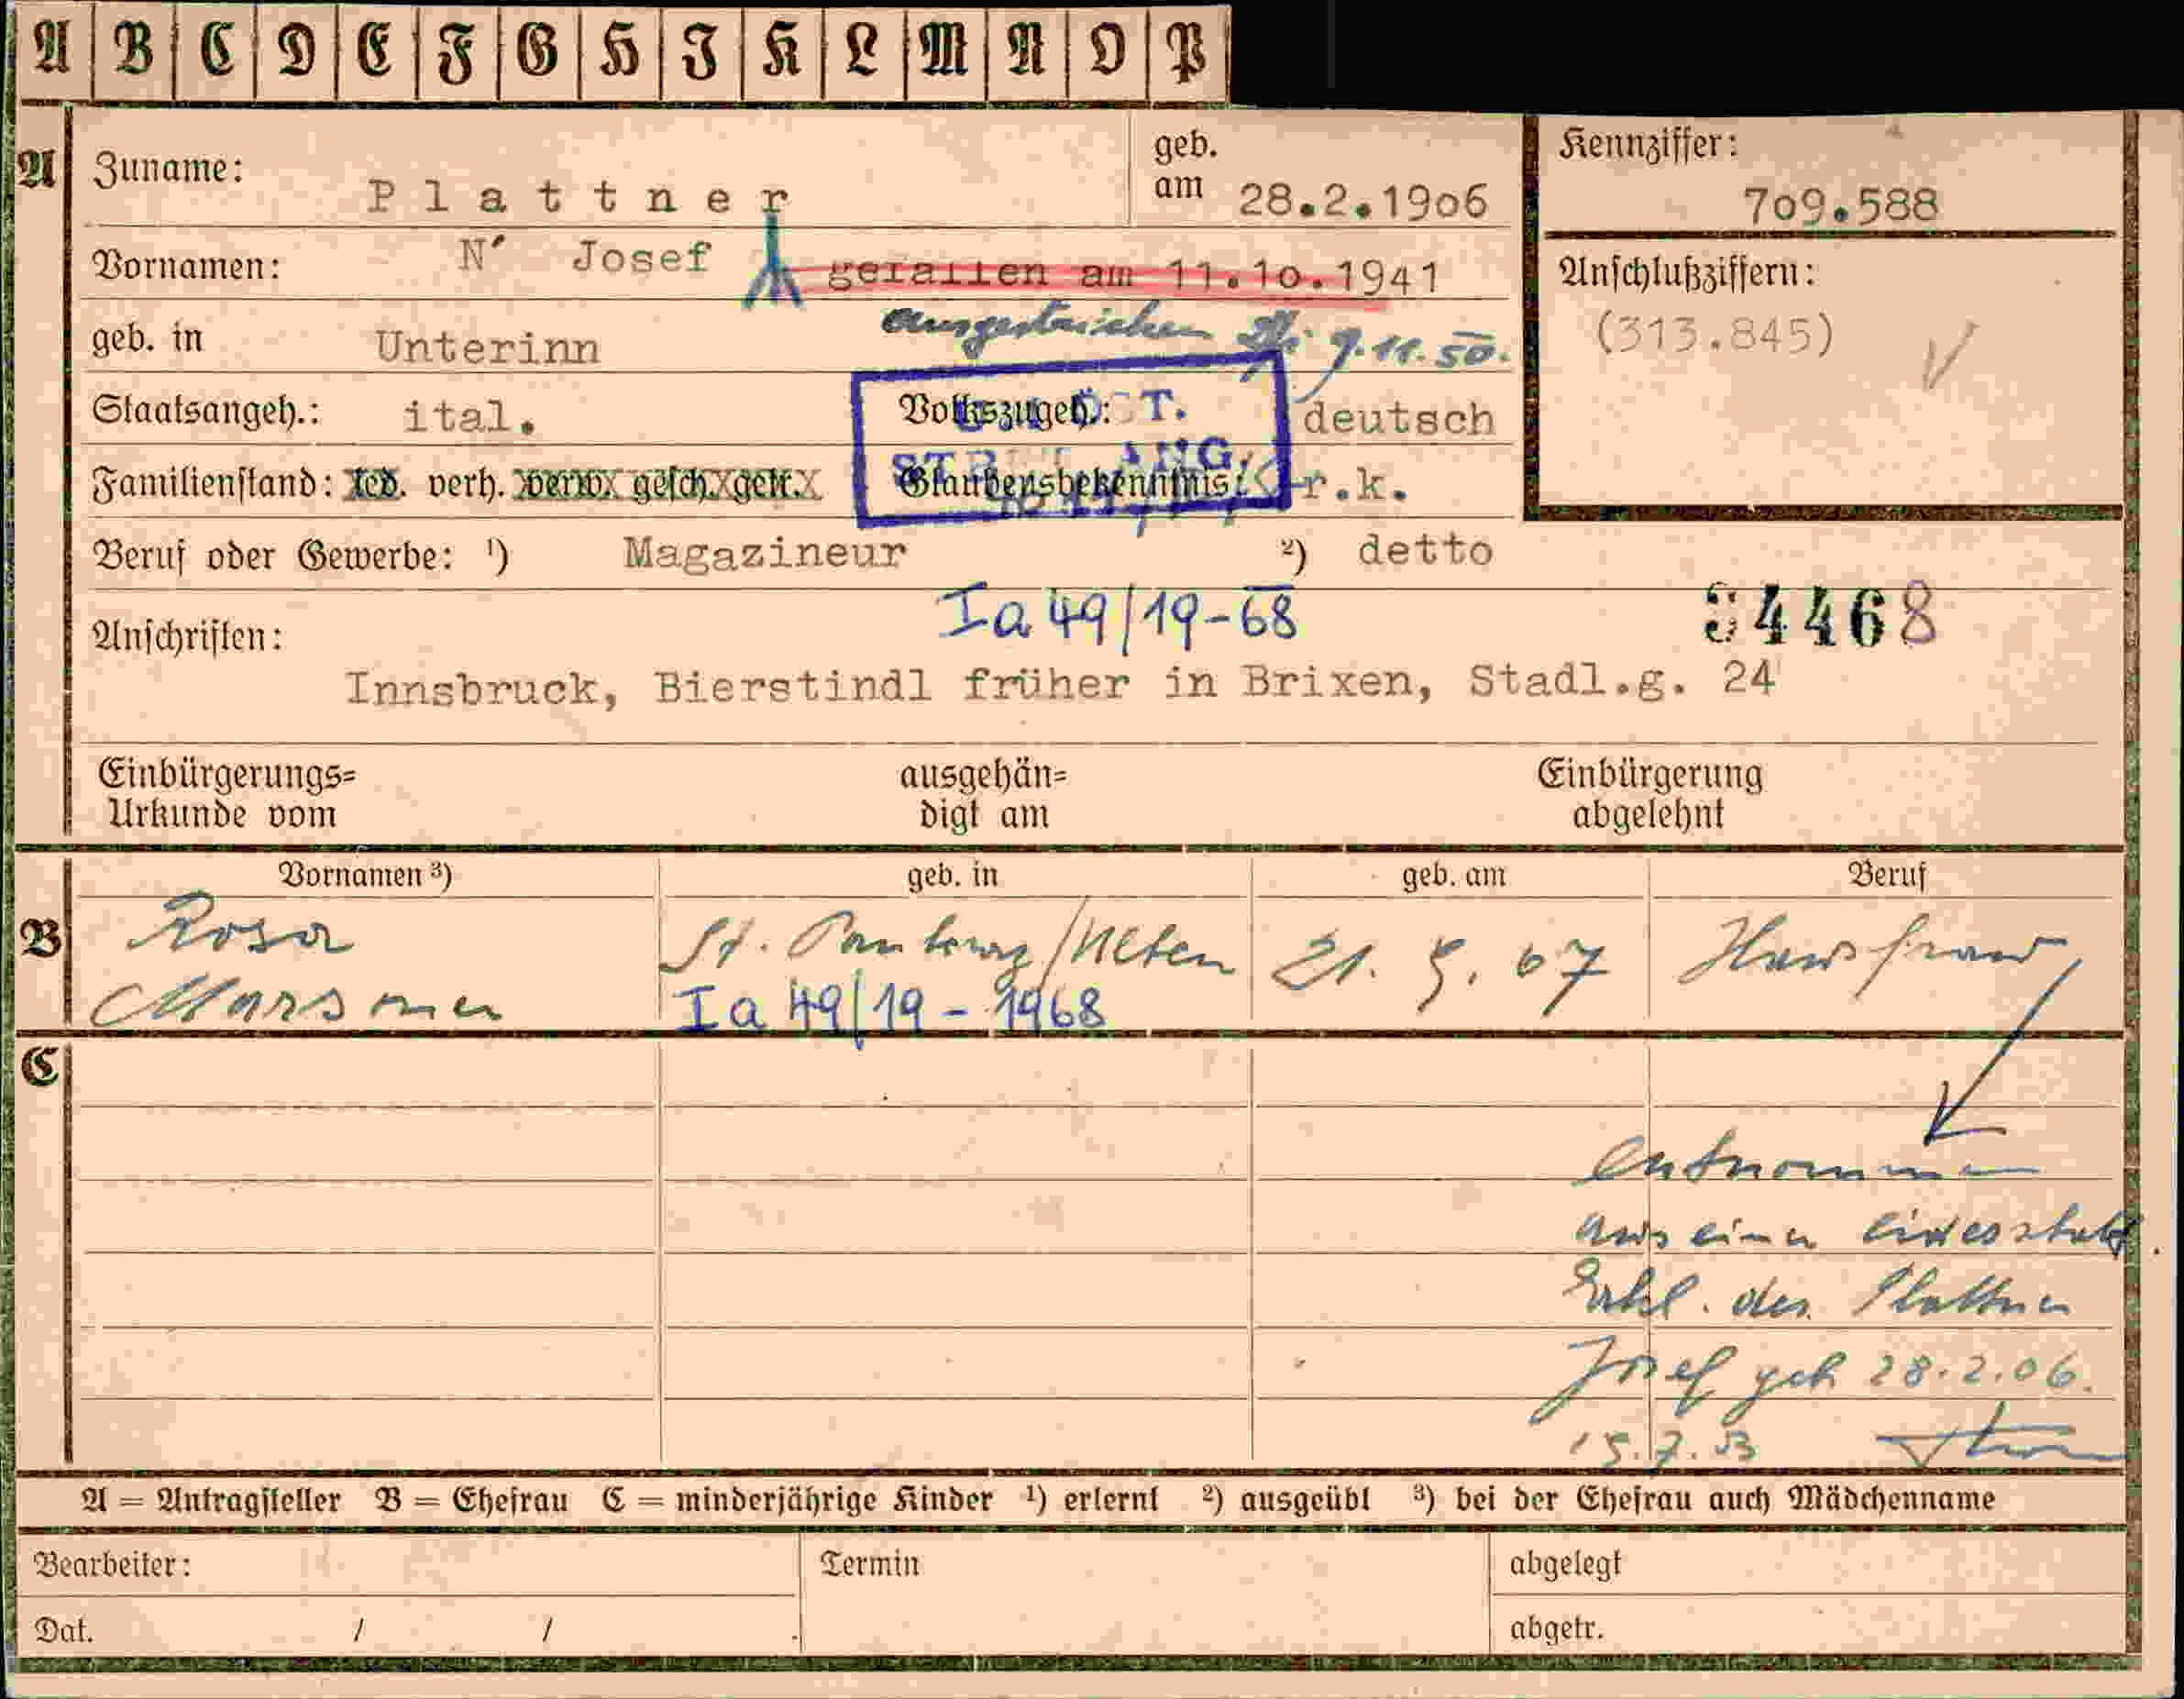 A B C D E F G H I K L M N O P
A Zuname: Plattner geb. am 28.2.1906 Kennziffer: 709.588
Vornamen: N' Josef gefallen am 11.10.1941 Anschlußziffern:
(313.845)
Ausgestrichen 9.11.50.
geb. in Unterinn
Staatsangeh.: ital. Volkszugeh.: deutsch
Familienstand: led. verh. verw. gesch. getr. Glaubensbekenntnis: r.k.
Beruf oder Gewerbe: ¹) Magazineur ²) detto
Ia 49/19-68 34468
Anschriften:
Innsbruck, Bierstindl früher in Brixen, Stadl.g. 24
Einbürgerungs= ausgehän= Einbürgerung
Urkunde vom digt am abgelehnt
Vornamen ³) geb. in geb. am Beruf
B Rosa St. Pankraz/Ulten 21. 5. 07 Hausfrau
Marsoner Ia 49/19 - 1968
C
entnommen
aus einer eidesstatt.
Erkl. des Plattner
Josef geb 28.2.06.
15.7.53
A = Antragsteller B = Ehefrau C = minderjährige Kinder ¹) erlernt ²) ausgeübt ³) bei der Ehefrau auch Mädchenname
Bearbeiter: Termin abgelegt
Dat. / / abgetr.